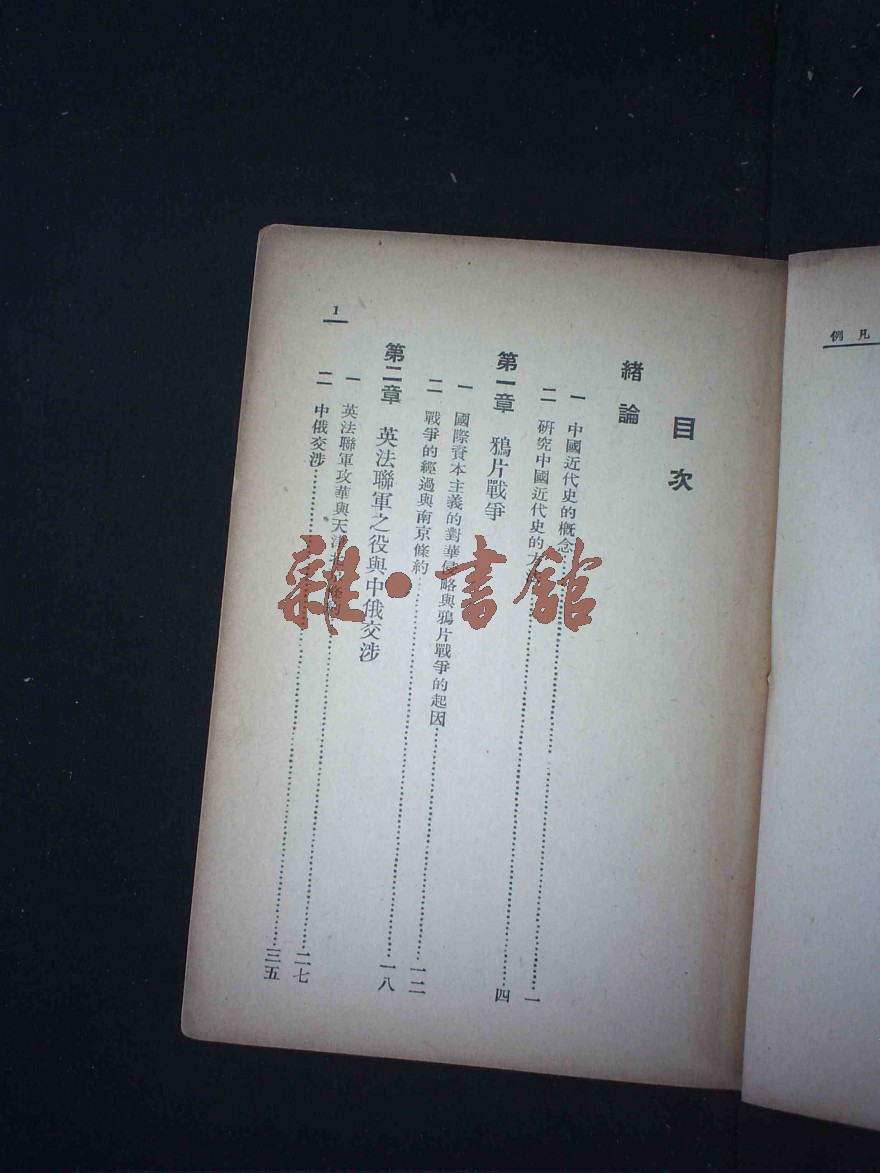 凡例
目次
緒論
一 中國近代史的概念……一
二 研究中國近代史的方……四
第一章 鴉片戰爭
一 國際資本主義的對華侵略與鴉片戰爭的起因……一二
二 戰爭的經過與南京條約……一八
第二章 英法聯軍之役與中俄交涉
一 英法聯軍攻華與天津……條約……二七
二 中俄交涉……三五
1
雜·書館